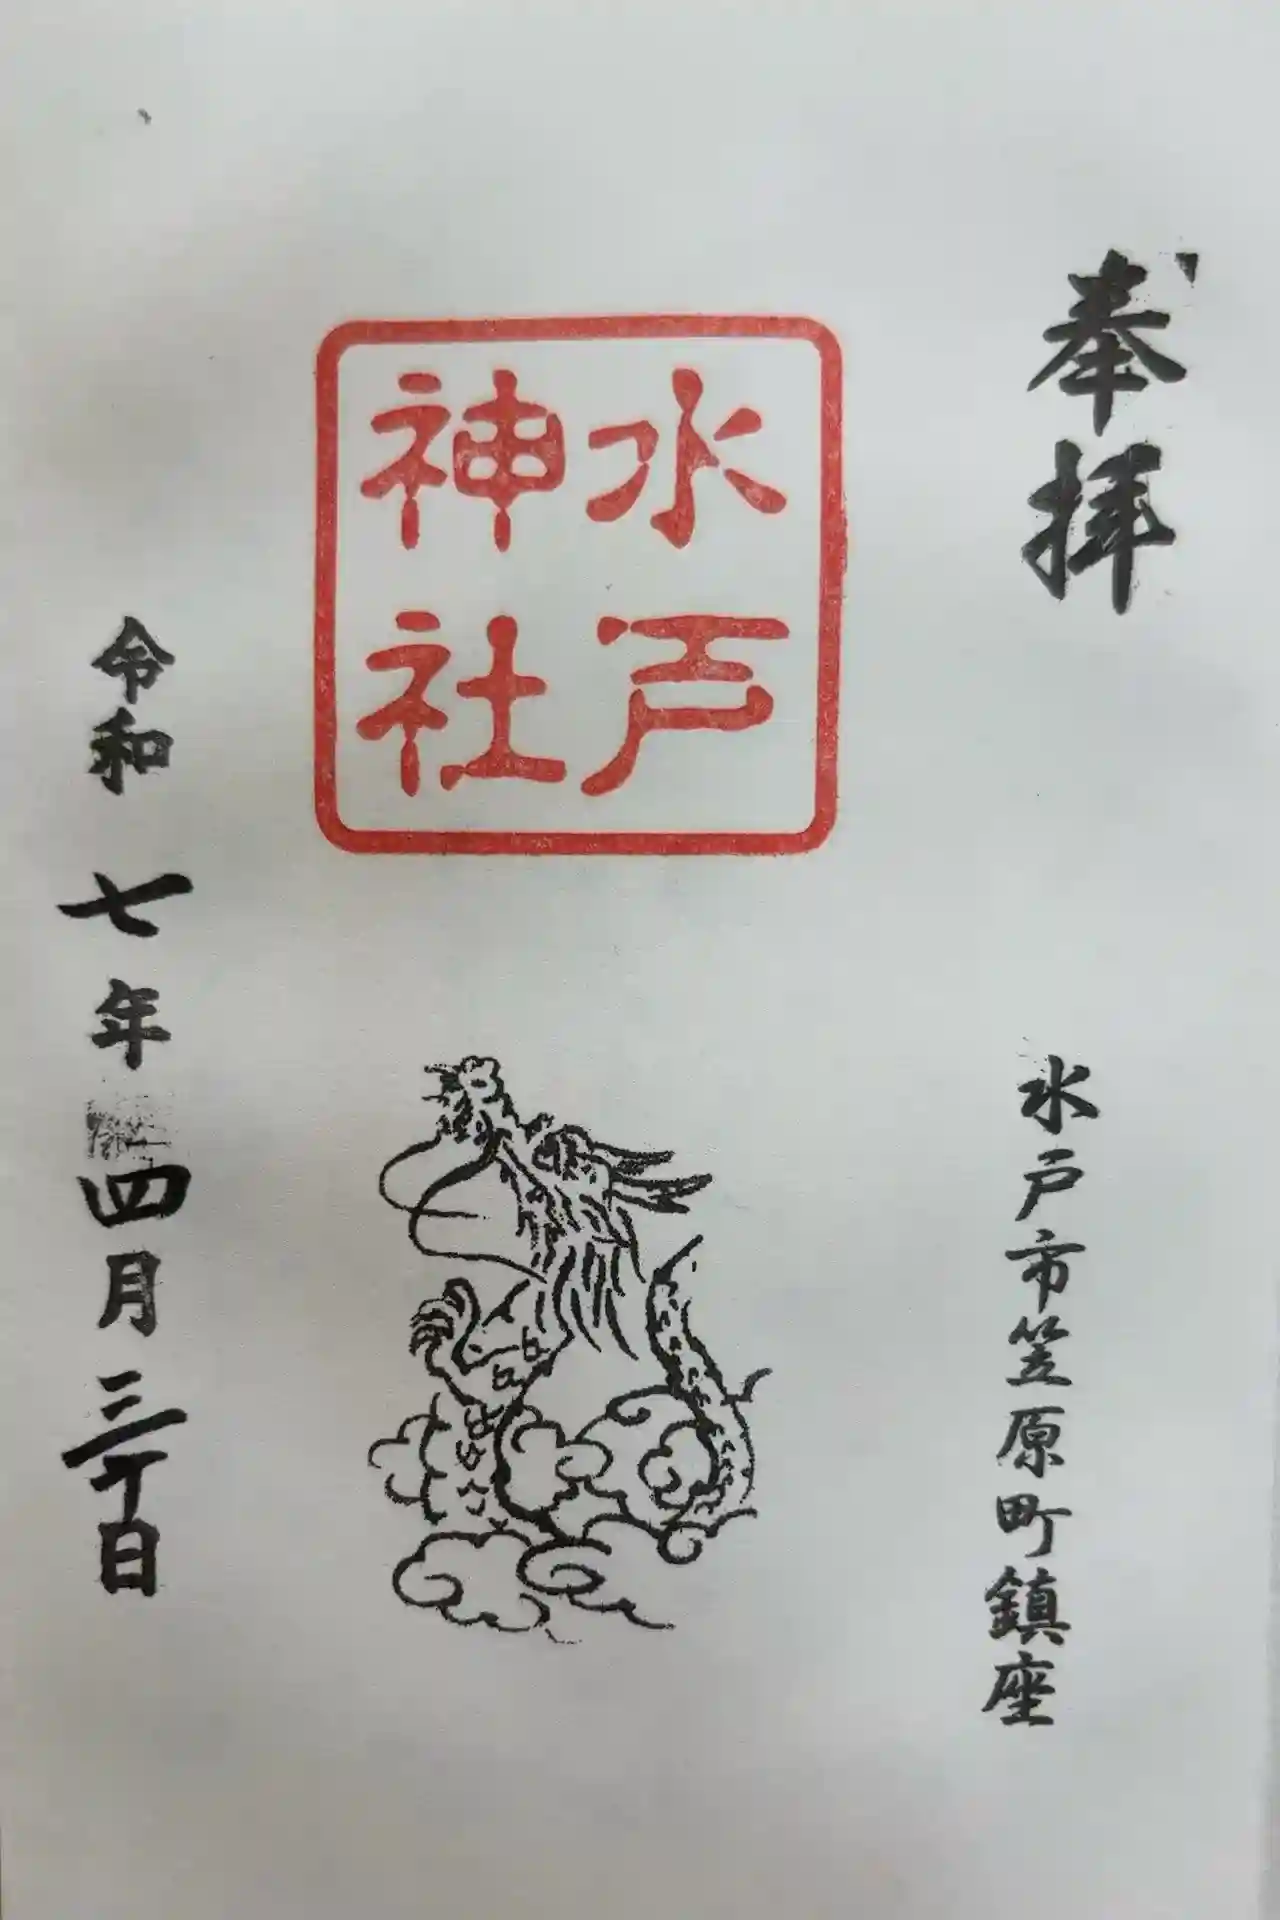 奉拝
水戸市笠原町鎮座
水戸
神社
令和七年四月三十日